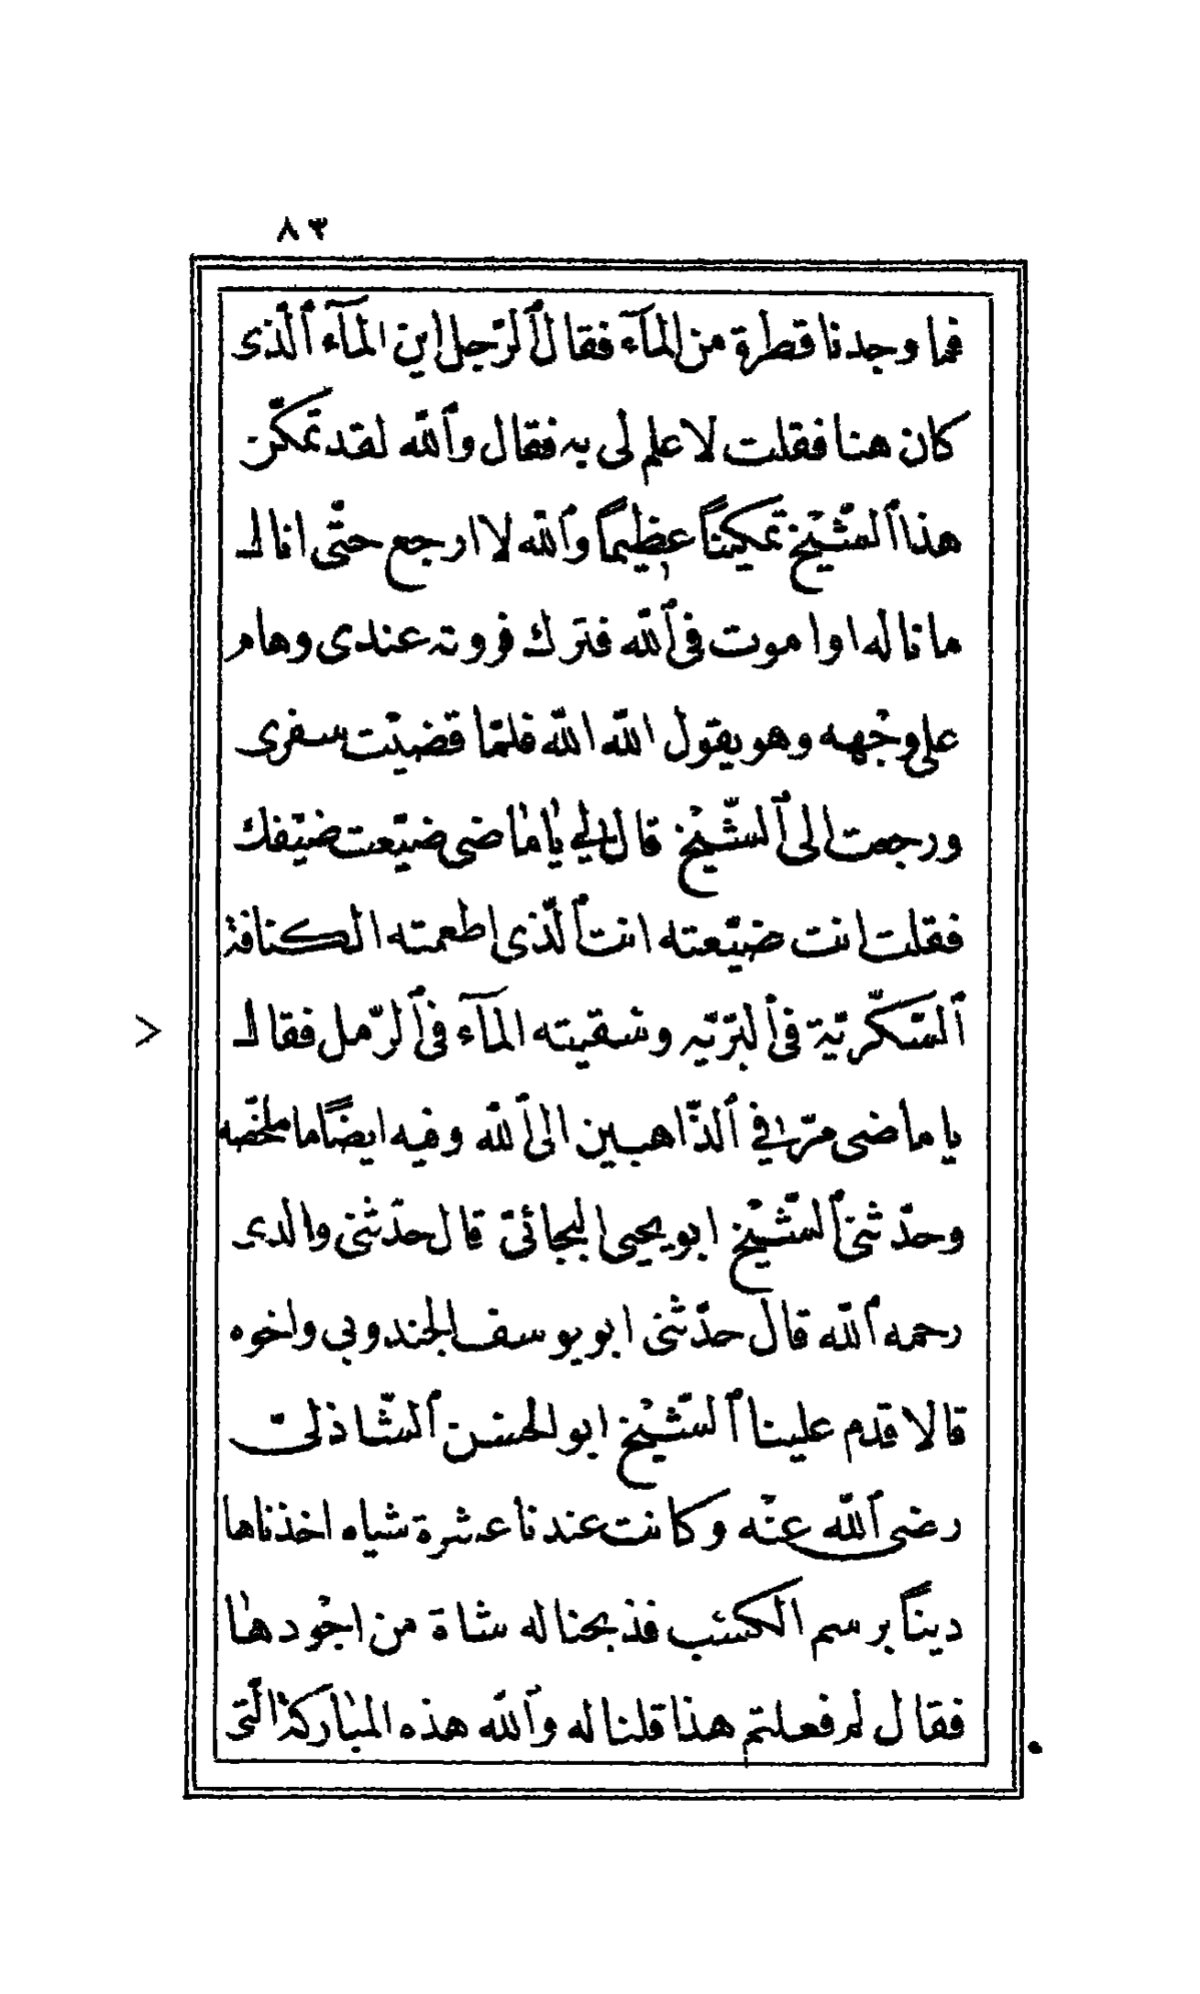 ٨٣
فما وجدنا قطرة من المآء فقال ٱلرّجل اين المآء ٱلّذى
كان هنا فقلت لا علم لى به فقال وٱللّه لقد تمكّن
هذا ٱلشّيْخ تمكينًا عظيمًا وٱللّه لا ارجع حتّى انال
ما ناله او اموت فى ٱللّه فترك فروته عندى وهام
على وجْهه وهو يقول اللّه اللّه فلمّا قضيْت سفرى
ورجعت الى ٱلشّيْخ قال لى يٰا مٰاضى ضيّعت ضيْفك
فقلت انت ضيّعته انت ٱلّذى اطعمته الكنافة
ٱلسّكّريّة فى ٱلبرّيّه وسقيته المآء فى ٱلرّمل فقال
يا ماضى مرّ فى ٱلذّاهبين الى ٱللّه وفيه ايضًا ما ملخّصه
وحدّثنى ٱلشّيْخ ابو يحيى البجائىّ قال حدّثنى والدى
رحمه ٱللّه قال حدّثنى ابو يوسف الجندوبى واخوه
قالا قدم علينا ٱلشّيْخ ابو الحسن ٱلشّاذلىّ
رضى ٱللّه عنْه وكانت عندنا عشرة شياه اخذناها
دينًا برسم الكسْب فذبحنا له شاة من اجْودهٰا
فقال لم فعلتم هذا قلنا له وٱللّه هذه المبٰاركة الّتى